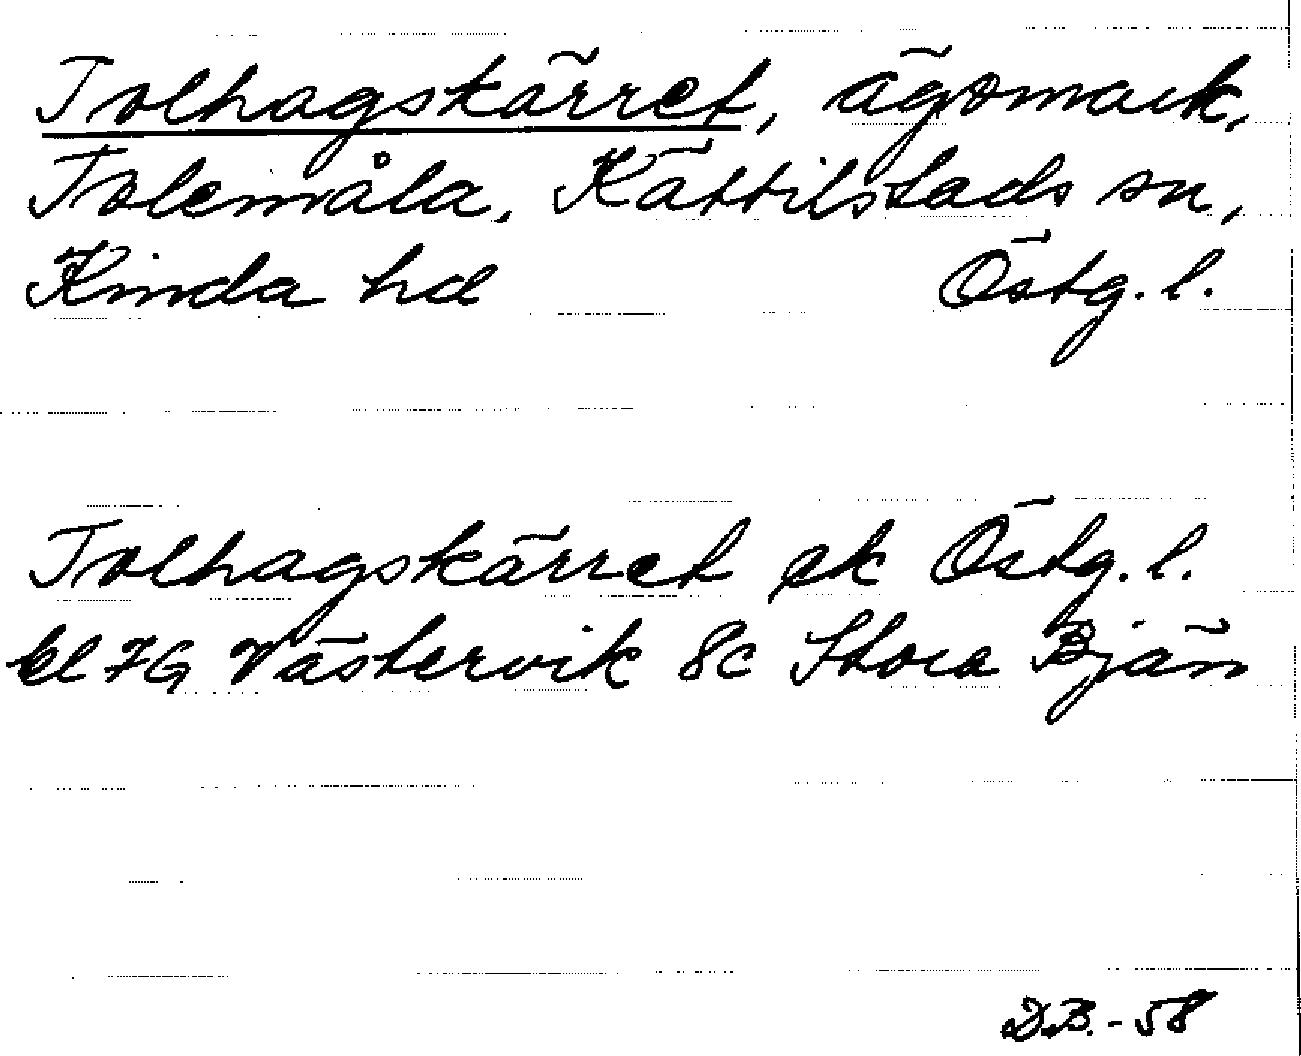 Tolhagskärret, ägomark,
Tolemåla, Kättilstads sn,
Kinda hd Östg. l.
Tolhagskärret ek Östg. l.
bl 7G Västervik 8c Stora Bjän
D.B. - 58